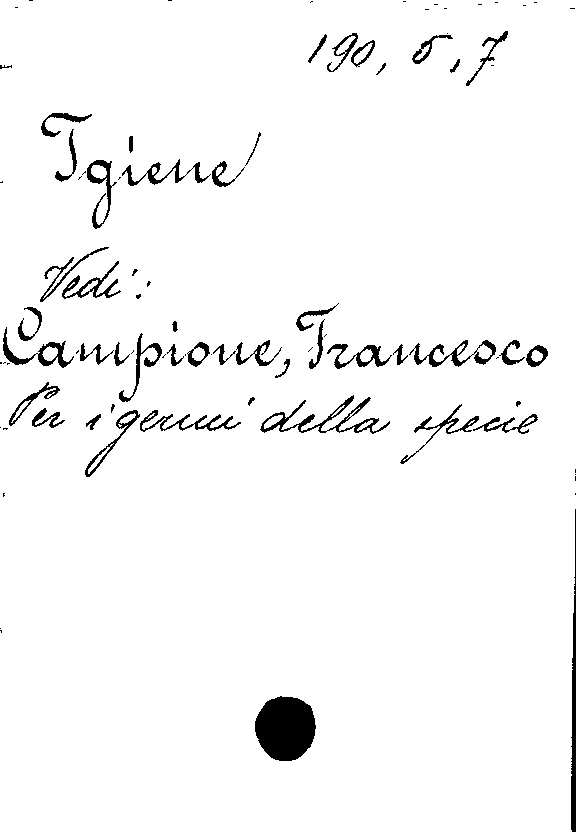 190, 5, 7
Igiene
Vedi:
Campione, Francesco
Per i germi della specie